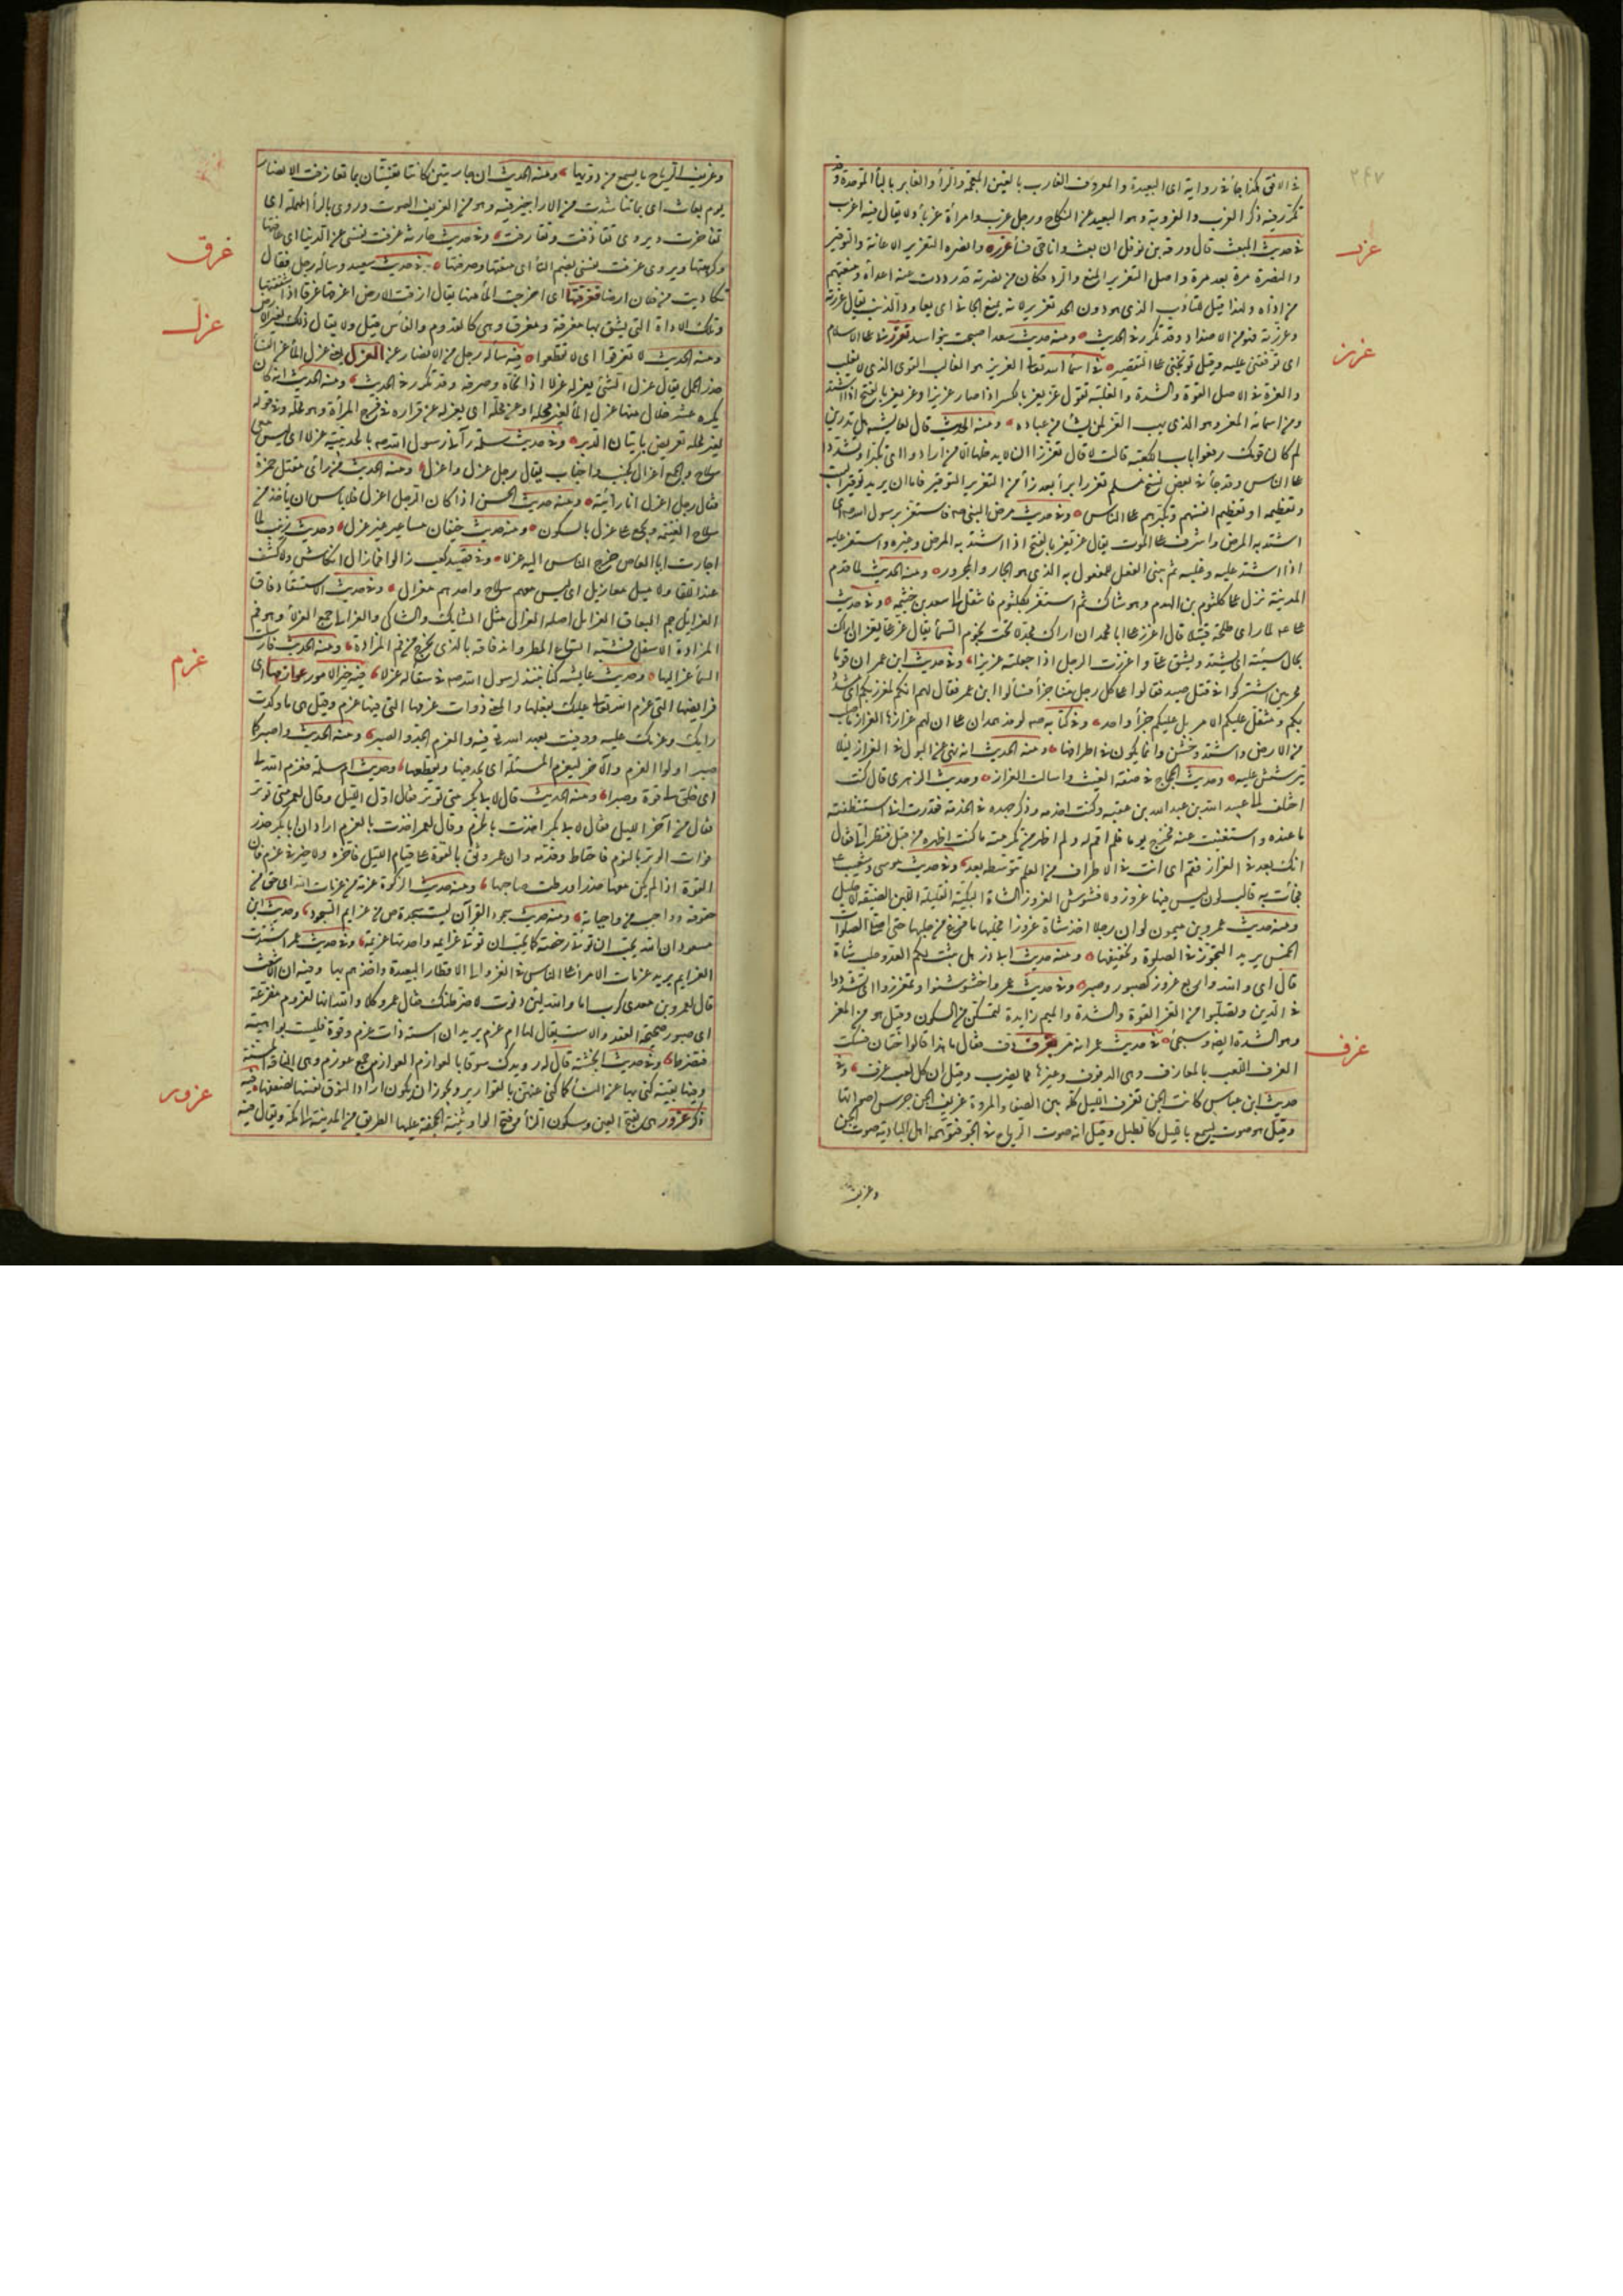 ٢٤٧
في الافق هكذا جاء في رواية اي البعيدة والمعروف الغارب بالغين المعجمة والراء والغابر بالباء الموحدة وقد
تكرر فيه ذكر العزب والعزوبة وهو البعيد عن النكاح ورجل عزب وامرأة عزباء ولا يقال فيه اعزب
عزر
في حديث المبعث قال ورقة بن نوفل ان بعث وانا حي فسأعزره وانصره التعزير الاعانة والتوقير
والنصرة مرة بعد مرة واصل التعزير المنع والرد فكان من نصرته قد رددت عنه اعداءه ومنعتهم
من اذاه ولهذا قيل للتأديب الذي هو دون الحد تعزير لانه يمنع الجاني ان يعاود الذنب يقال عزرته
وعزّرته فهو من الاضداد وقد تكرر في الحديث ومنه حديث سعد اصبحت بنو اسد تعزرني على الاسلام
عزز
اي توقفني عليه وقيل توبخني على التقصير في اسماء الله تعالى العزيز هو الغالب القوي الذي لا يغلب
والعزة في الاصل القوة والشدة والغلبة تقول عز يعز بالكسر اذا صار عزيزا وعز يعز بالفتح اذا اشتد
ومن اسمائه المعز وهو الذي يهب العز لمن يشاء من عباده ومنه الحديث قال لعايشه هل تدرين
لم كان قومك رفعوا باب الكعبة قالت لا قال تعززا ان لا يدخلها الا من ارادوا اي تكبرا وتشددا
على الناس وقد جاء في بعض نسخ مسلم تعزرا براء بعد زاء من التعزير التوقير فاما ان يريد توقير البيت
وتعظيمه او تعظيم انفسهم وتكبرهم على الناس وفي حديث مرض النبي صم فاستعز برسول الله صم اي
اشتد به المرض واشرف على الموت يقال عز يعز بالفتح اذا اشتد به المرض وغيره واستعز عليه
اذا اشتد عليه وغلبه ثم يبنى الفعل للمفعول به الذي هو الجار والمجرور ومنه الحديث لما قدم
المدينة نزل على كلثوم بن الهدم وهو شاك ثم استعز بكلثوم فانتقل الى سعد بن خيثمه وفي حديث
علي عم لما راى طلحة قتيلا قال اعزز علي ابا محمد ان اراك مجدلا تحت نجوم السماء يقال عز علي يعز ان اراك
بحال سيئة اي يشتد ويشق علي واعززت الرجل اذا جعلته عزيزا وفي حديث ابن عمر ان قوما
محرمين اشتركوا في قتل صيد فقالوا على كل رجل منا جزاء فسألوا ابن عمر فقال لهم انكم لمعزز بكم اي مشدد
بكم ومثقل عليكم الامر بل عليكم جزاء واحد وفي كتابه صم لوفد همدان على ان لهم عزازها العزاز ما صلب
من الارض واشتد وخشن وانما يكون في اطرافها ومنه الحديث انه نهى عن البول في العزاز ليلا
يترشش عليه وحديث الحجاج في صفة الغيث واسالت العزاز وحديث الزهري قال كنت
اختلف الى عبيد الله بن عبد الله بن عتبه وكنت اخدمه وذكر جهده في الخدمة فقدرت اني استنظفت
ما عنده واستغنيت عنه فخرج يوما فلم اقم له ولم اظهر من تكرمته ما كنت اظهره من قبل فنظر الي فقال
انك بعد في العزاز فقم اي انت في الاطراف من العلم لم تتوسطه بعد وفي حديث موسى وشعيب عم
فجاءت به قالب لون ليس فيها عزوز ولا فشوش العزوز الشاة البكيئة القليلة اللبن الضيقة الاحليل
ومنه حديث عمرو بن ميمون لو ان رجلا اخذ شاة عزوزا فحلبها ما فرغ من حلبها حتى اصلي الصلوات
الخمس يريد التجوز في الصلوة وتخفيفها ومنه حديث ابي ذر هل يثبت لكم العدو حلب شاة
قال اي والله واربع عزوز كصبور وصبر وفي حديث عمر واخشوشنوا وتمعززوا اي تشددوا
في الدين وتصلبوا من العز القوة والشدة والميم زايدة كتمسكن من السكون وقيل هو من المعز
عزف
وهو الشدة ايضا وسيجيء في حديث عمر انه مر بعزف دف فقال ما هذا قالوا ختان فسكت
العزف اللعب بالمعازف وهي الدفوف وغيرها مما يضرب وقيل ان كل لعب عزف وفي
حديث ابن عباس كانت الجن تعزف الليل كله بين الصفا والمروة عزيف الجن جرس اصواتها
وقيل هو صوت يسمع بالليل كالطبل وقيل انه صوت الرياح في الجو فتوهمه اهل البادية صوت الجن
وعزيف
وعزيف الرياح ما يسمع من دويها ومنه الحديث ان جاريتين كانتا تغنيان بما تعازفت الانصار
يوم بعاث اي بما تناشدت من الاراجيز فيه وهو من العزيف الصوت وروي بالراء المهملة اي
تفاخرت ويروى تقاذفت وتقارفت وفي حديث حارثة عزفت نفسي عن الدنيا اي عافتها
عزق
وكرهتها ويروى عزفت نفسي بضم التاء اي منعتها وصرفتها في حديث سعيد وسأله رجل فقال
تكاريت من فلان ارضا فعزقتها اي اخرجت الماء منها يقال عزقت الارض اعزقها عزقا اذا شققتها
عزل
وتلك الاداة التي يشق بها معزقة ومعزق وهي كالقدوم والفأس قيل ولا يقال ذلك لغير الارض
ومنه الحديث لا تعزقوا اي لا تقطعوا فيه سأله رجل من الانصار عن العزل يعني عزل الماء عن النساء
حذر الحمل يقال عزل الشيء يعزله عزلا اذا نحاه وصرفه وقد تكرر في الحديث ومنه الحديث انه كان
يكره عشر خلال منها عزل الماء لغير محله او عن محله اي يعزله عن قراره في فرج المرأة وهو محله وفي قوله
لغير محله تعريض باتيان الدبر وفي حديث سلمة رآني رسول الله صم بالحديبية عزلا اي ليس معي
سلاح والجمع اعزال كجنب واجناب يقال رجل عزل واعزل ومنه الحديث من رأى مقتل حمزة
فقال رجل اعزل انا رأيته ومنه حديث الحسن اذا كان الرجل اعزل فلا باس ان ياخذ من
سلاح الغنيمة ويجمع على عزل بالسكون ومنه حديث خيفان مساعير غير عزل وحديث زينب لما
اجارت ابا العاص خرج الناس اليه عزلا وفي قصيد كعب زالوا فما زال انكاس ولا كشف
عند اللقاء ولا ميل معازيل اي ليس معهم سلاح واحدهم معزال وفي حديث الاستسقاء دفاق
العزائل جم البعاق العزايل اصله العزالي مثل الشايك والشاكي والعزالي جمع العزلاء وهو فم
المزادة الاسفل فشبه اتساع المطر واندفاقه بالذي يخرج من فم المزادة ومنه الحديث فارسلت
السماء عزاليها وحديث عايشه كنا ننبذ لرسول الله صم في سقاء له عزلاء فيه خير الامور عوازمها اي
عزم
فرايضها التي عزم الله تعالى عليك بفعلها والمعنى ذوات عزمها التي فيها عزم وقيل هي ما وكدت
رايك وعزمك عليه ووفيت بعهد الله فيه والعزم الجد والصبر ومنه الحديث واصبر كما
صبر اولوا العزم والآخر ليعزم المسئلة اي يجد فيها ويقطعها وحديث ام سلمة فعزم الله لي
اي خلق لي قوة وصبرا ومنه الحديث قال لابي بكر متى توتر فقال اول الليل وقال لعمر متى توتر
فقال من آخر الليل فقال لابي بكر اخذت بالحزم وقال لعمر اخذت بالعزم اراد ان ابا بكر حذر
فوات الوتر بالنوم فاحتاط وقدمه وان عمر وثق بالقوة على قيام الليل فاخره ولا خير في عزم فان
القوة اذا لم يكن معها حذر اورطت صاحبها ومنه حديث الزكوة عزمة من عزمات الله اي حق من
حقوقه وواجب من واجباته ومنه حديث سجود القرآن ليست سجدة ص من عزايم السجود وحديث ابن
مسعود ان الله يحب ان تؤتى رخصه كما يحب ان تؤتى عزايمه واحدتها عزيمة وفي حديث عمر اشتدت
العزايم يريد عزمات الامراء على الناس في الغزو الى الاقطار البعيدة واخذهم بها وفيه ان الاشعث
قال لعمرو بن معدي كرب اما والله لئن دنوت لاضرطنك فقال عمرو كلا والله انها لعزوم مفزعة
اي صبور صحيحة العقد والاست يقال لها ام عزم يريد ان استه ذات عزم وقوة وليست بواهية
فتضرط وفي حديث انجشة قال له رويدك سوقا بالعوازم العوازم جمع عوزم وهي الناقة المسنة
عزور
وفيها بقية كنى بها عن النساء كما كنى عنهن بالقوارير ويجوز ان يكون اراد النوق نفسها لضعفها فيه
ذكر عزور هي بفتح العين وسكون الزاء وفتح الواو ثنية الجحفة عليها الطريق من المدينة الى مكة ويقال فيه